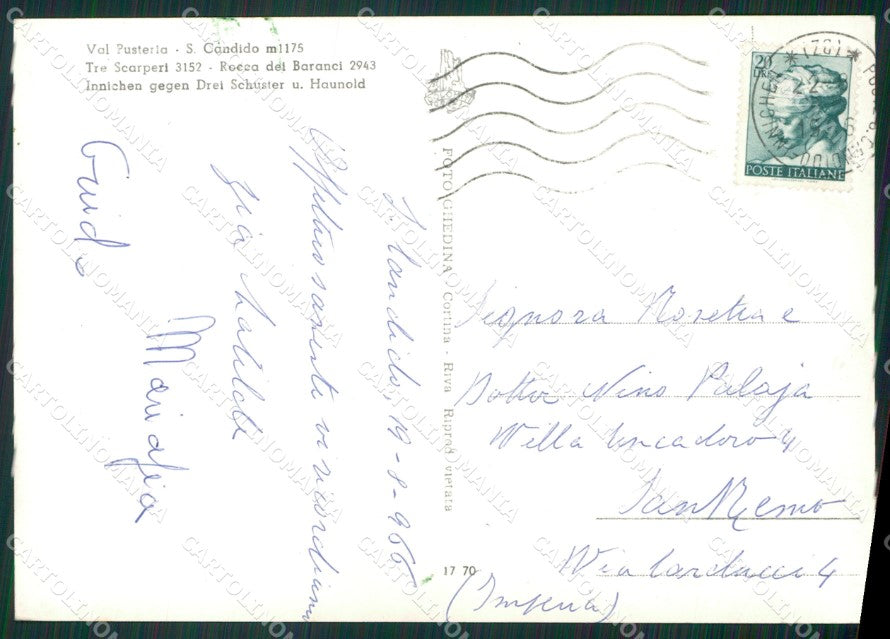 Val Pusteria - S. Candido m1175
Tre Scarperi 3152 - Rocca dei Baranci 2943
Innichen gegen Drei Schuster u. Haunold
S. Candido, 19-8-966
Affettuosamente vi ricordiamo
zia Matilde
Mariolia
Guido
FOTO GHEDINA Cortina - Riva Riprod. vietata
17 70
20
LIRE
POSTE ITALIANE
(BZ) *
Signora Rosetta e
Dottor Nino Palaja
Villa Uncadoro 4
San Remo
Via Carducci 4
(Imperia)
CARTOLINOMANIA